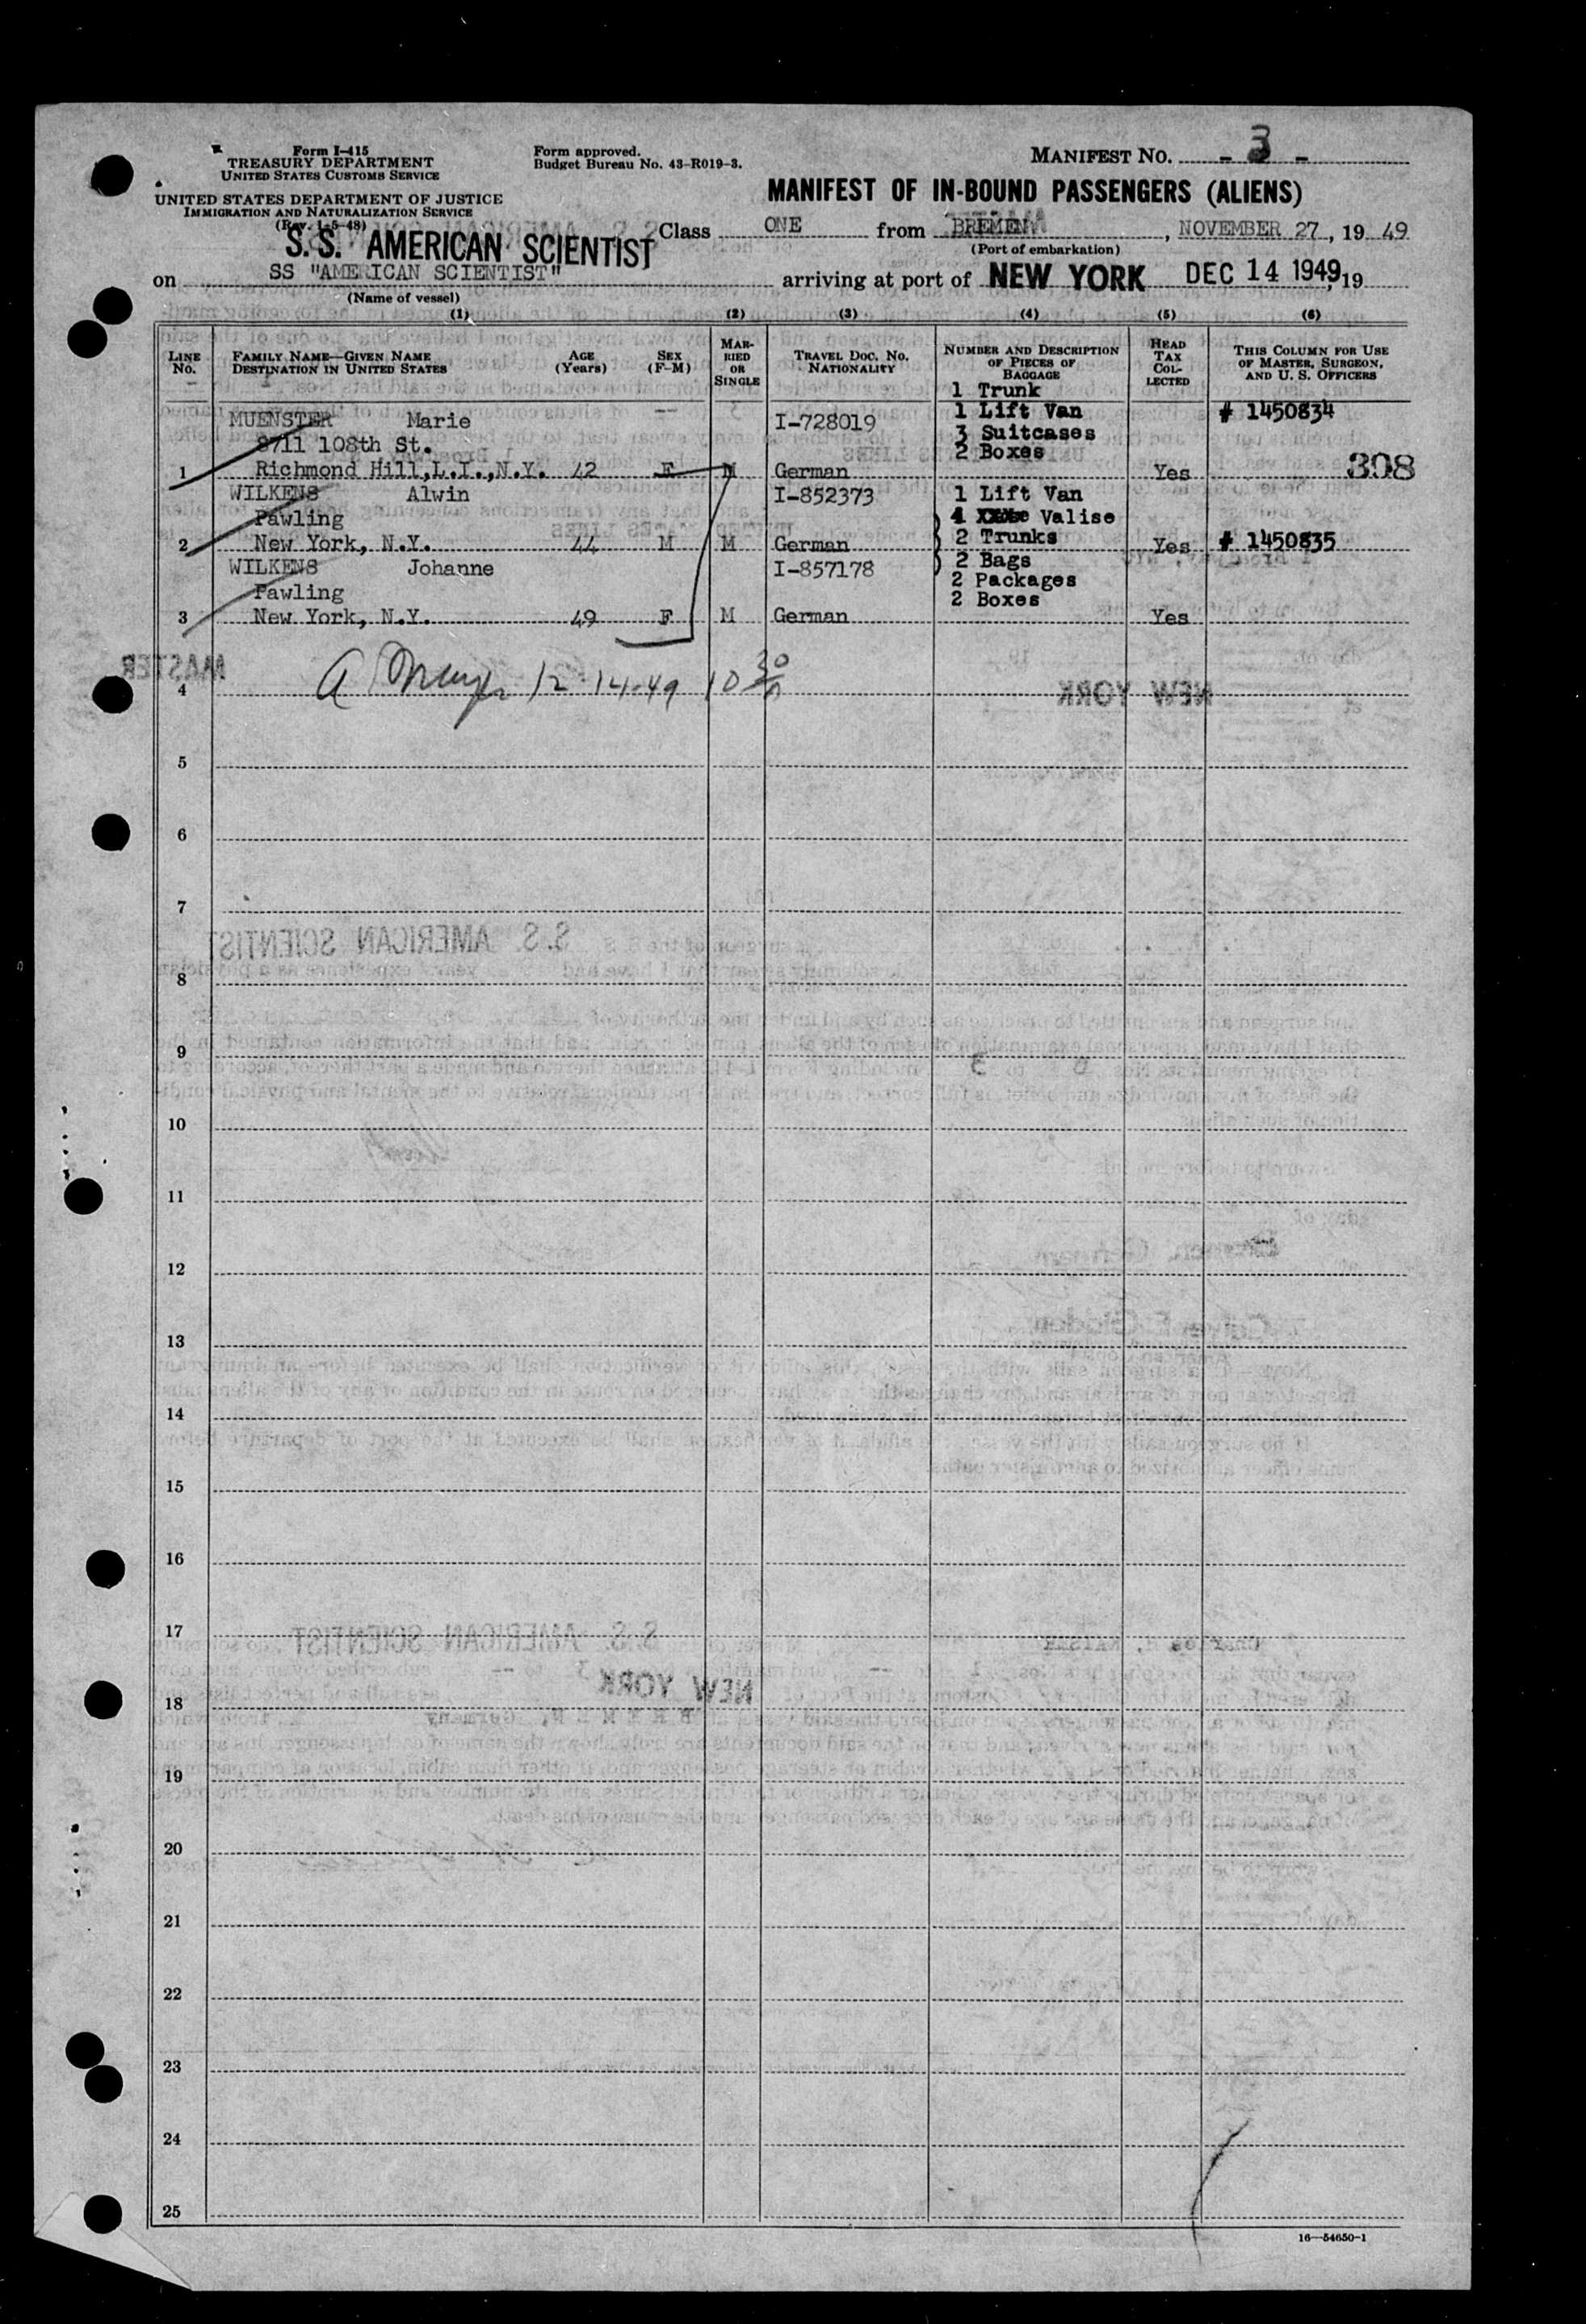 Form I-415
TREASURY DEPARTMENT
UNITED STATES CUSTOMS SERVICE
UNITED STATES DEPARTMENT OF JUSTICE
IMMIGRATION AND NATURALIZATION SERVICE
(Rev. 1-5-48)
Form approved.
Budget Bureau No. 43-R019-3.
MANIFEST No. - 3 -
MANIFEST OF IN-BOUND PASSENGERS (ALIENS)
S.S. AMERICAN SCIENTIST
Class ONE from BREMEN, NOVEMBER 27, 19 49
(Port of embarkation)
on SS "AMERICAN SCIENTIST" arriving at port of NEW YORK DEC 14 1949, 19
(Name of vessel)
(1) (2) (3) (4) (5) (6)
LINE No.
FAMILY NAME—GIVEN NAME
DESTINATION IN UNITED STATES
AGE (Years)
SEX (F-M)
MARRIED OR SINGLE
TRAVEL DOC. No.
NATIONALITY
NUMBER AND DESCRIPTION OF PIECES OF BAGGAGE
HEAD TAX COLLECTED
THIS COLUMN FOR USE OF MASTER, SURGEON, AND U. S. OFFICERS
1 Trunk
MUENSTER Marie I-728019 1 Lift Van # 1450834
8711 108th St. 3 Suitcases
2 Boxes
1 Richmond Hill,L.I.,N.Y. 42 F M German Yes 308
WILKENS Alwin I-852373 1 Lift Van
Pawling 1 Valise
2 New York, N.Y. 44 M M German 2 Trunks Yes # 1450835
WILKENS Johanne I-857178 2 Bags
Pawling 2 Packages
2 Boxes
3 New York, N.Y. 49 F M German Yes
4 12-14-49 10 30
5
6
7
8
9
10
11
12
13
14
15
16
17
18
19
20
21
22
23
24
25
16—54650-1